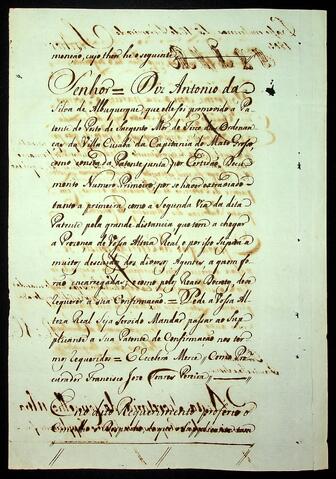 moreação, cujo theor he o seguinte
Senhor = Diz Antonio da
Silva de Albuquerque, que elle foi promovido a Pa-
tente do Posto de Sargento Mór de fora das Ordenan-
ças da Villa Cuiabá da Capitania de Mato Groso
como consta da Patente junta, por Certidão, Docu-
mento Numero Primeiro, por se haver extraviado
tanto a primeira como a Segunda Via da dita
Patente pela grande distancia que tem a chegar
a Presença de Vossa Alteza Real, e por isso sugeita a
muitos descuidos dos diversos Agentes a quem se-
rão encarregadas, e como pelos Reais Decretos, deve
requerer a sua Confirmação = Pede a Vossa Al-
teza Real seja Servido Mandar passar ao Sup-
plicante a sua Patente de Confirmação nos ter-
mos requeridos = E Recebera Mercê = Como Pro-
curador Francisco Jozé Pereira
o
Conselho o Despacho, do que o Supplicante